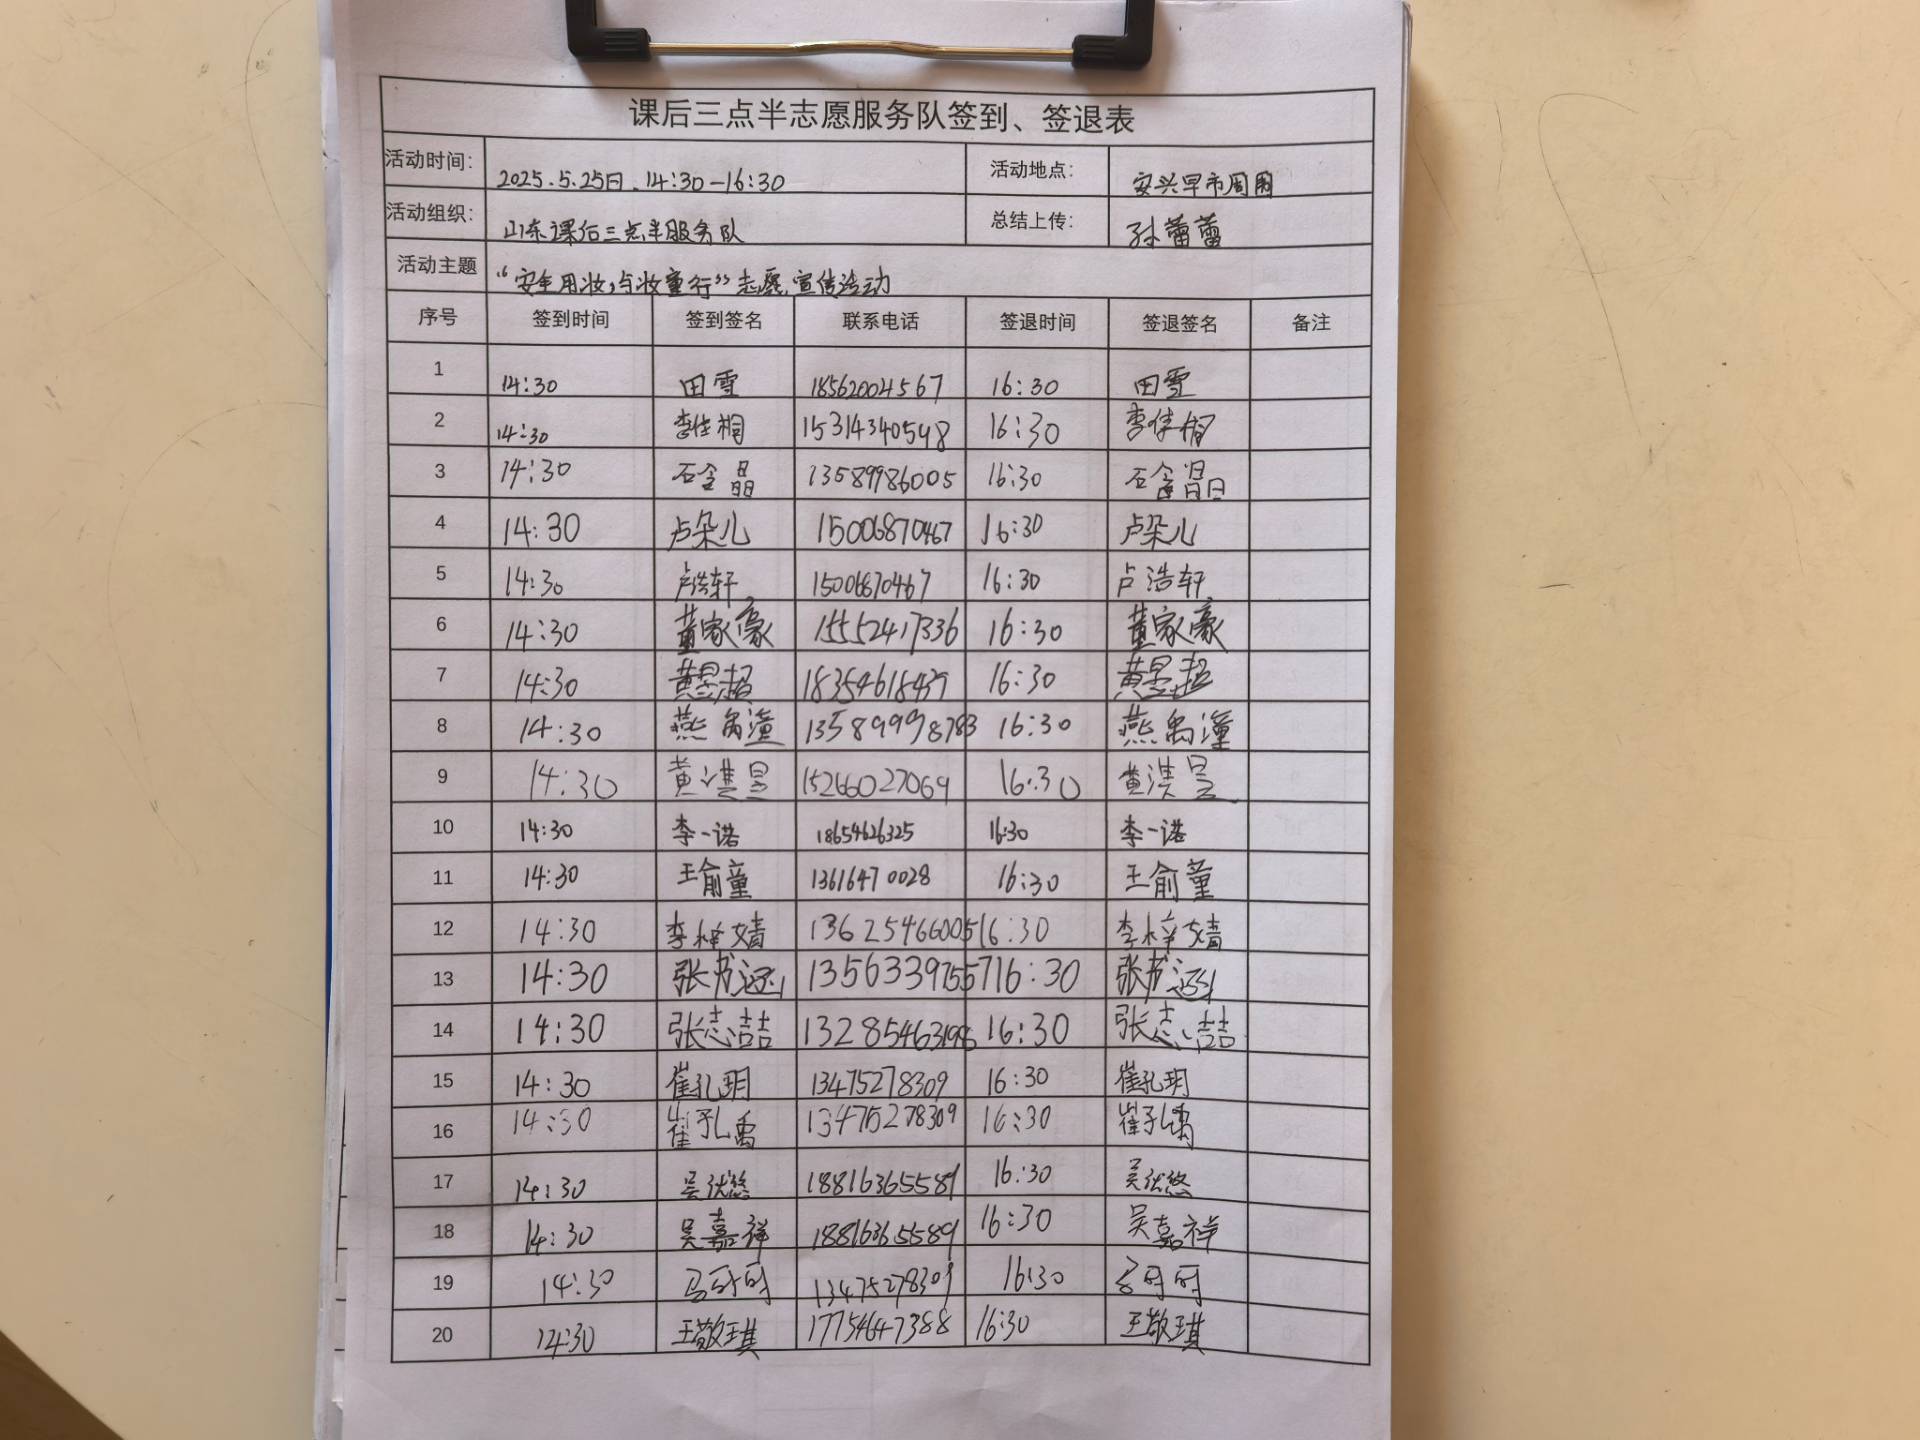 课后三点半志愿服务队签到、签退表
活动时间: 2025.5.25日.14:30-16:30 活动地点: 安兴早市周围
活动组织: 山东课后三点半服务队 总结上传: 孙蕾蕾
活动主题 “安全用妆,与妆童行”志愿宣传活动
序号 签到时间 签到签名 联系电话 签退时间 签退签名 备注
1 14:30 田雪 18562004567 16:30 田雪
2 14:30 李佳桐 15314340548 16:30 李佳桐
3 14:30 石含晶 13589986005 16:30 石含晶
4 14:30 卢朵儿 15006870467 16:30 卢朵儿
5 14:30 卢浩轩 15006870467 16:30 卢浩轩
6 14:30 董家豪 15552417336 16:30 董家豪
7 14:30 黄昱超 18354618437 16:30 黄昱超
8 14:30 燕禹潼 13589998783 16:30 燕禹潼
9 14:30 黄淇昱 15266027069 16:30 黄淇昱
10 14:30 李一诺 18654626325 16:30 李一诺
11 14:30 王俞童 13616470028 16:30 王俞童
12 14:30 李梓婧 13625466005 16:30 李梓婧
13 14:30 张书 13563397557 16:30 张书
14 14:30 张志喆 13285463198 16:30 张志喆
15 14:30 崔孔玥 13475278309 16:30 崔孔玥
16 14:30 崔孔禹 13475278309 16:30 崔孔禹
17 14:30 吴悠 18816365589 16:30 吴悠
18 14:30 吴嘉祥 18816365589 16:30 吴嘉祥
19 14:30 可可 13475278309 16:30 可可
20 14:30 王敬琪 17754647388 16:30 王敬琪